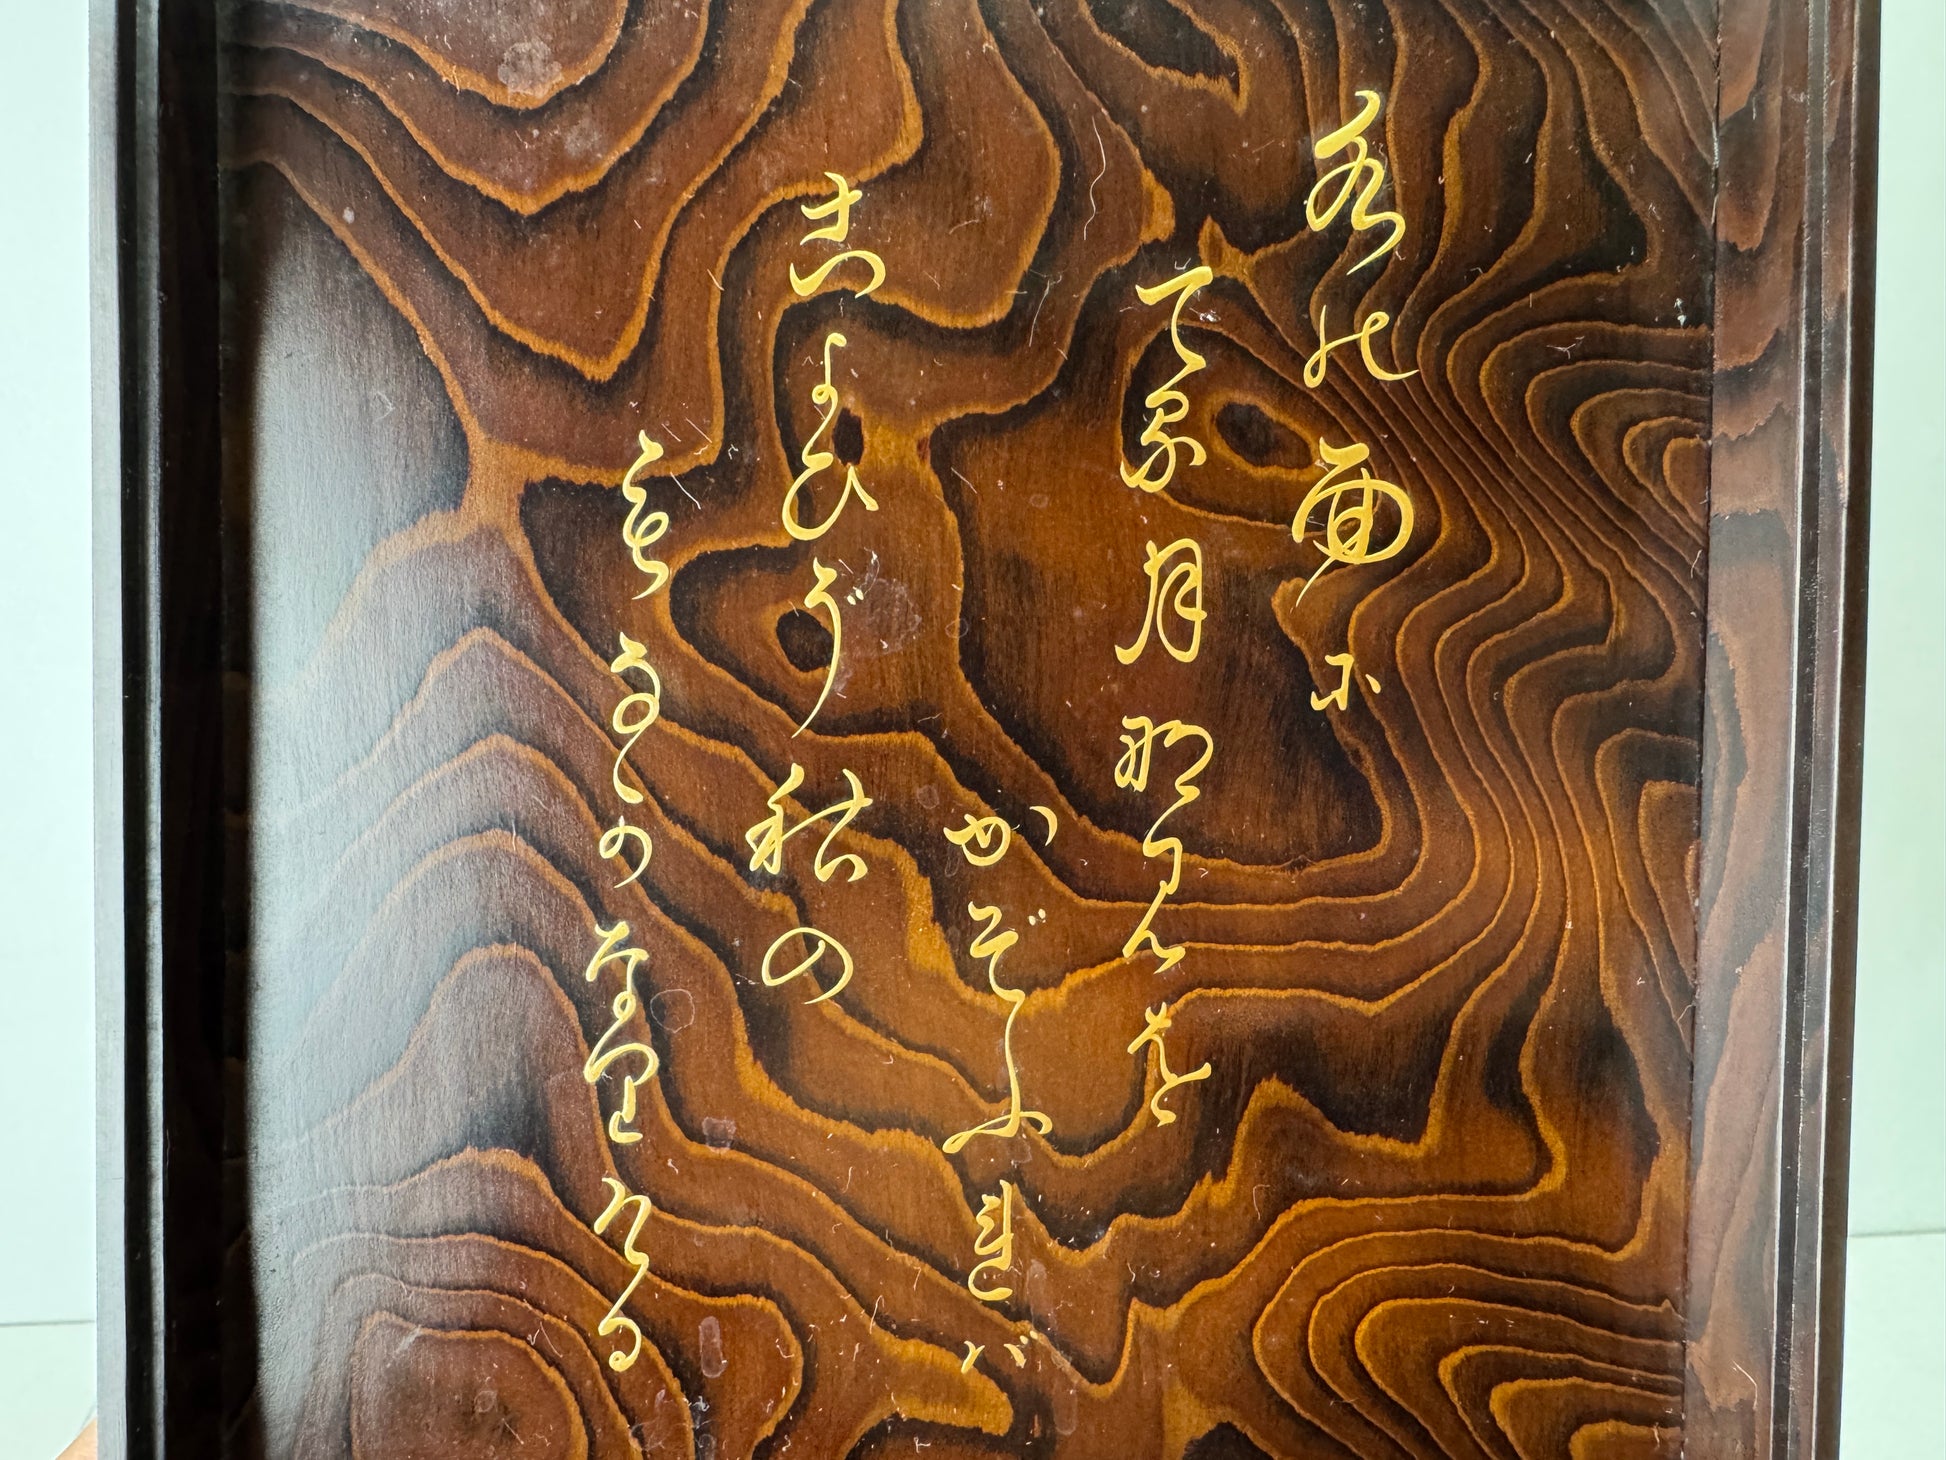 水の面に
てる月なみを
かぞふれば
こよひぞ秋の
もなかのなりける